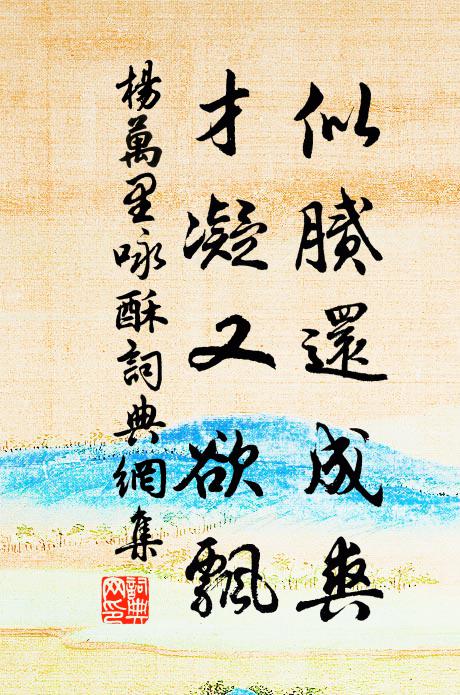 似膩還成爽
才凝又欲飄
楊萬里咏酥詞典網集